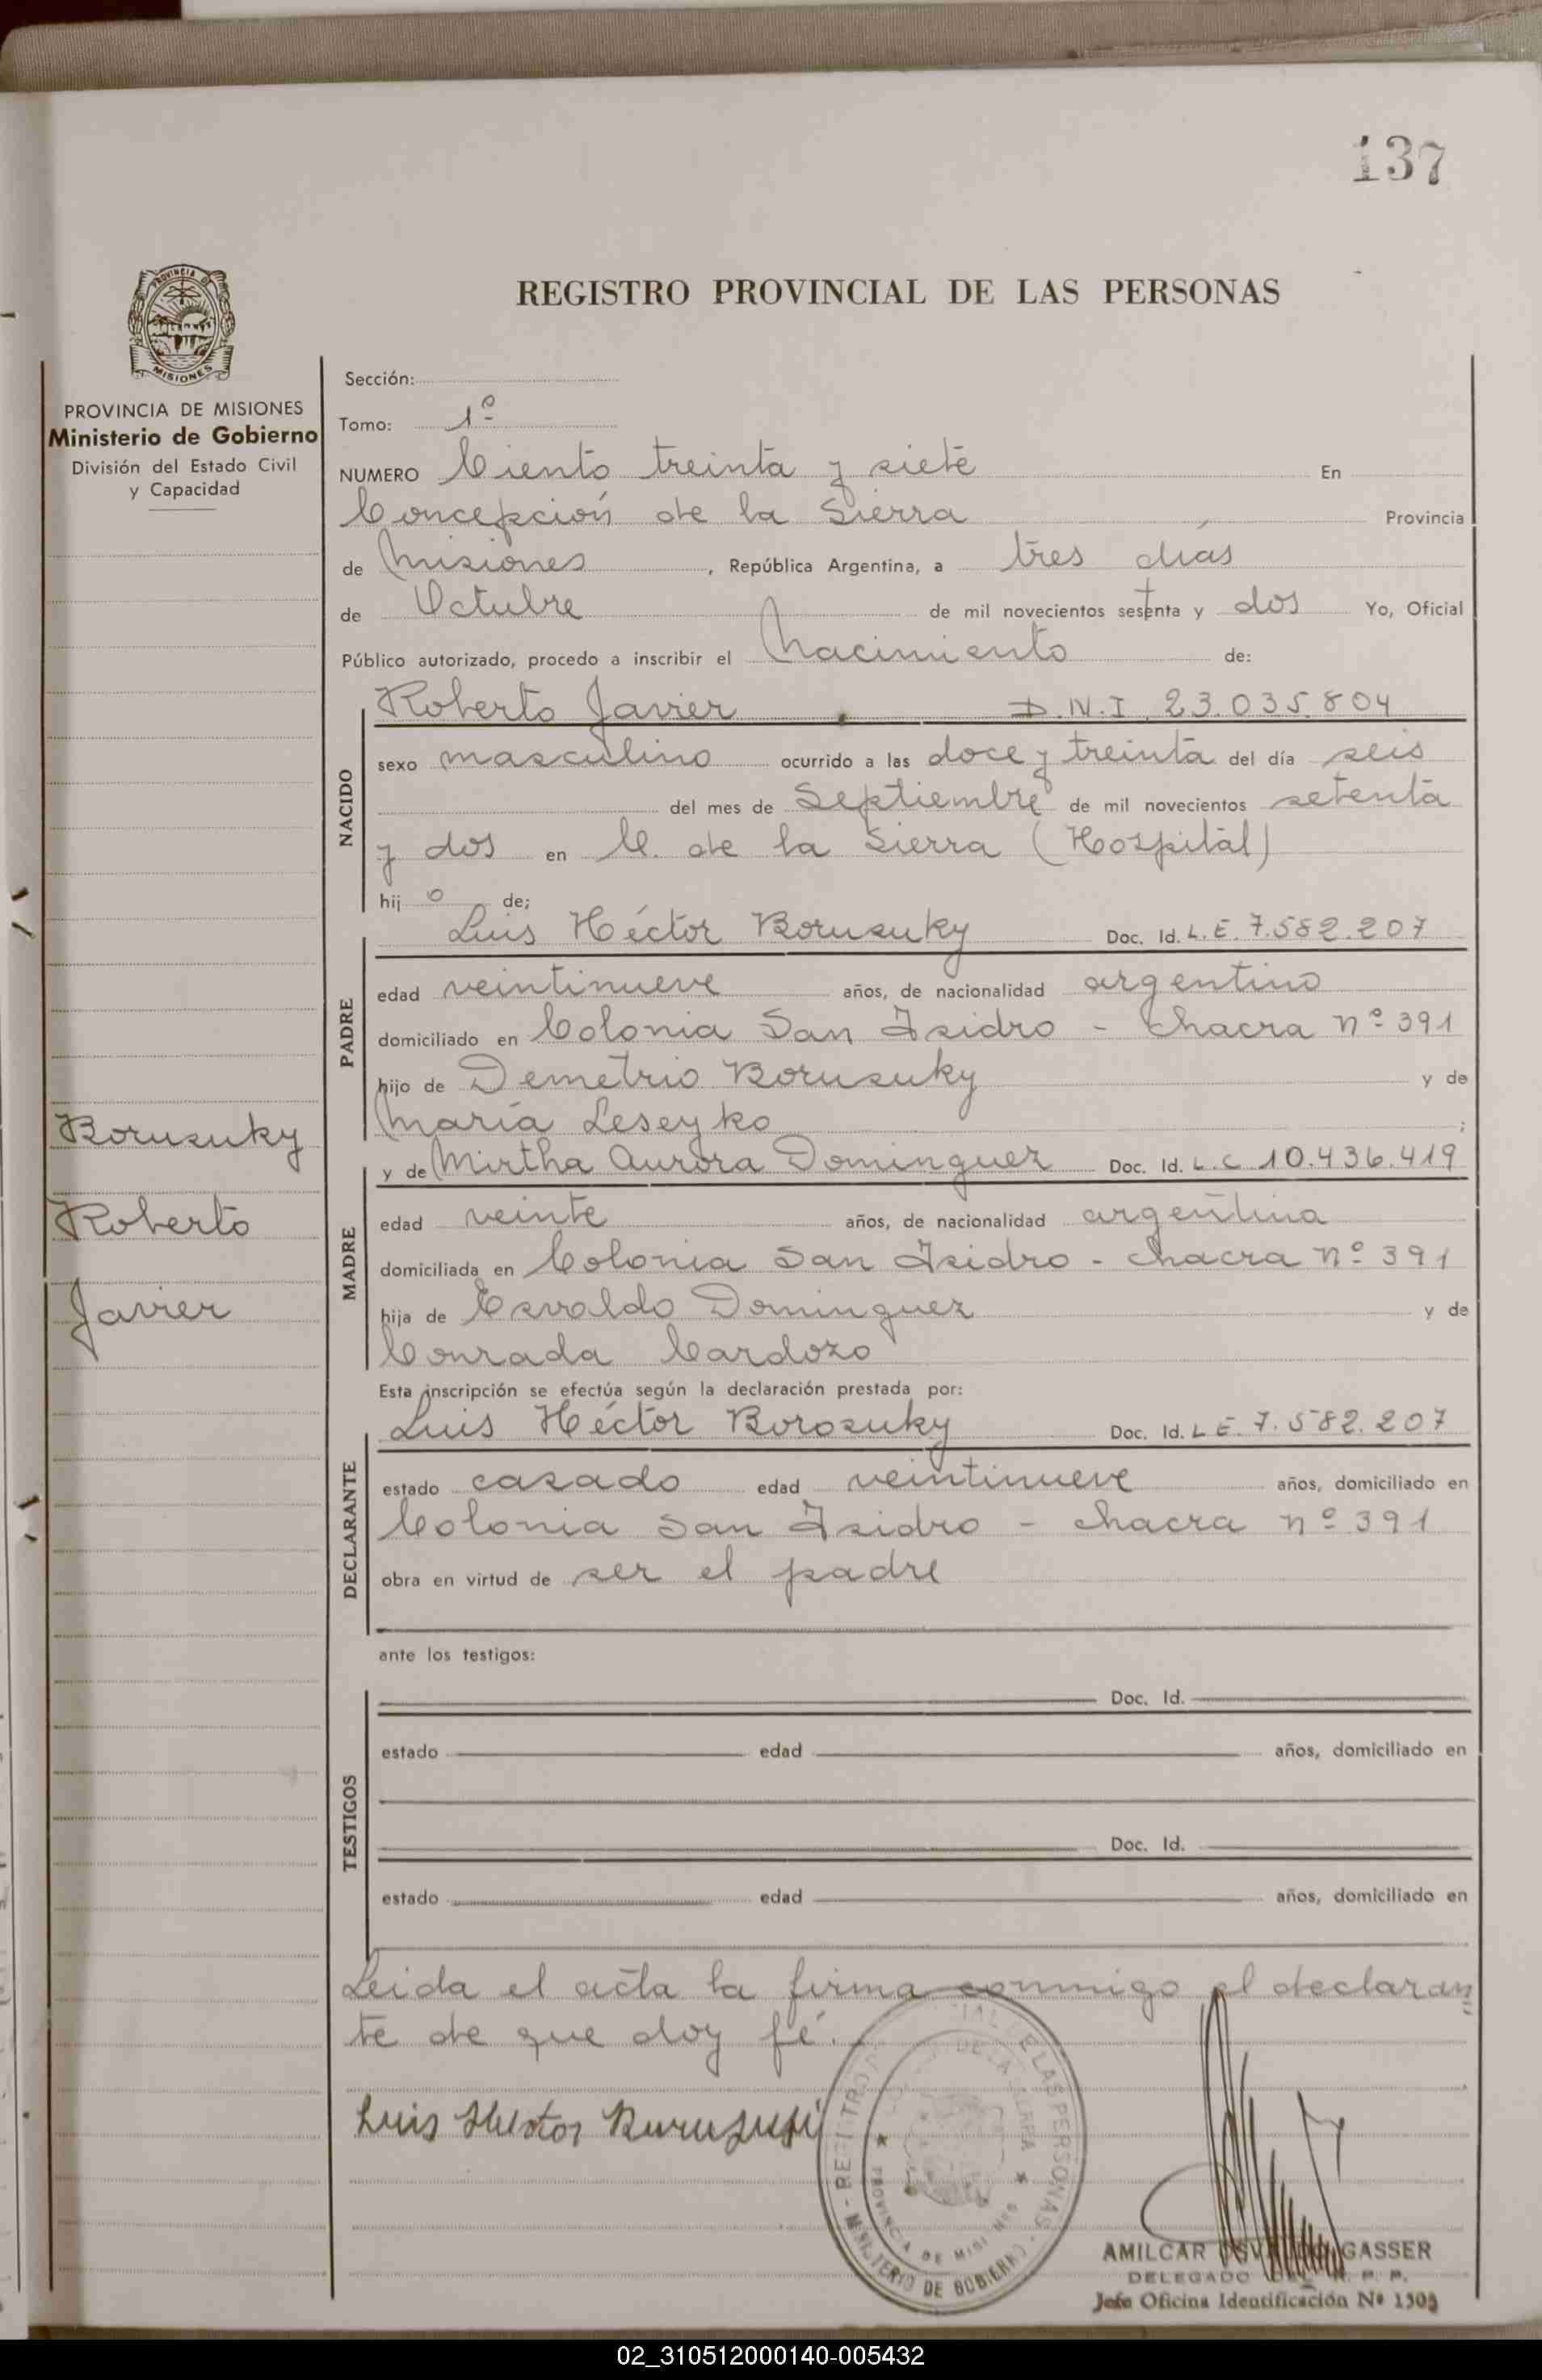 137
PROVINCIA DE
MISIONES
REGISTRO PROVINCIAL DE LAS PERSONAS
PROVINCIA DE MISIONES
Ministerio de Gobierno
División del Estado Civil
y Capacidad
Sección:
Tomo: 1º
NUMERO Ciento treinta y siete En
Concepción de la Sierra Provincia
de Misiones, República Argentina, a tres días
de Octubre de mil novecientos setenta y dos Yo, Oficial
Público autorizado, procedo a inscribir el Nacimiento de:
Roberto Javier D.N.I. 23.035.804
NACIDO
sexo masculino ocurrido a las doce y treinta del día seis
del mes de Septiembre de mil novecientos setenta
y dos en C. de la Sierra (Hospital)
hijo de;
Luis Héctor Boruzuky Doc. Id. L.E. 7.582.207
PADRE
edad veintinueve años, de nacionalidad argentino
domiciliado en Colonia San Isidro - Chacra nº 391
hijo de Demetrio Boruzuky y de
María Leseyko ;
y de Mirtha Aurora Dominguez Doc. Id. L.C 10.436.419
MADRE
edad veinte años, de nacionalidad argentina
domiciliada en Colonia San Isidro - chacra nº 391
hija de Esvaldo Dominguez y de
Conrada Cardozo
Esta inscripción se efectúa según la declaración prestada por:
Luis Héctor Borozuky Doc. Id. L E. 7.582.207
DECLARANTE
estado casado edad veintinueve años, domiciliado en
Colonia San Isidro - chacra nº 391
obra en virtud de ser el padre
ante los testigos:
TESTIGOS
Doc. Id.
estado edad años, domiciliado en
Doc. Id.
estado edad años, domiciliado en
Leida el acta la firma conmigo el declaran
te de que doy fé.
Boruzuky
Roberto
Javier
Luis Hector
PROVINCIA DE MISIONES
MINISTERIO DE GOBIERNO
AMILCAR OSVALDO GASSER
DELEGADO DEL R. P. P.
Jefe Oficina Identificación Nº
02_310512000140-005432